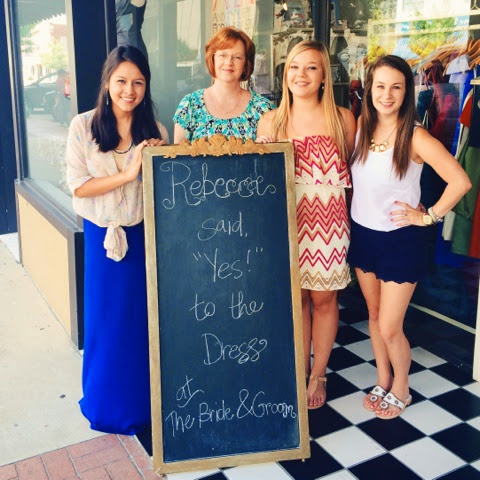 Rebecca
said,
"Yes!"
to the
Dress
at
The Bride & Groom